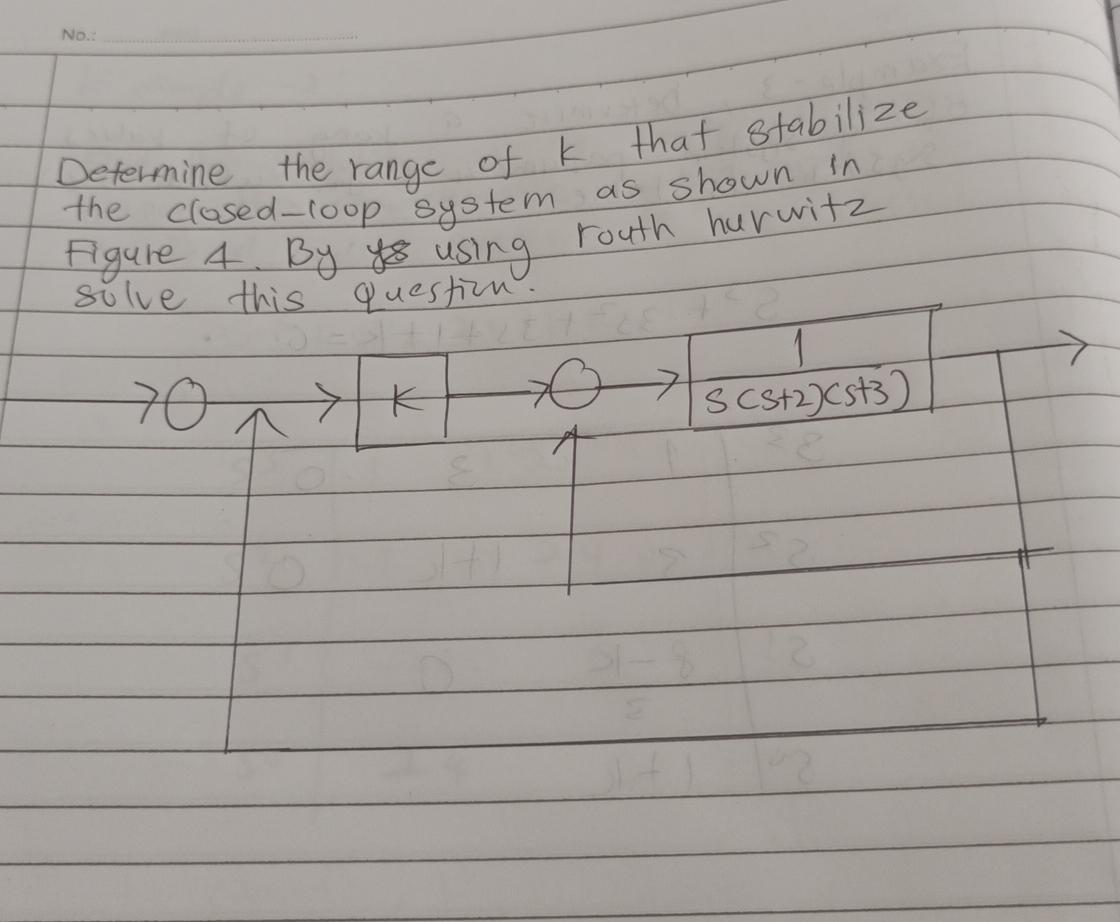 No.:
Determine the range of k that stabilize
the closed-loop system as shown in
Figure 4. By using routh hurwitz
solve this question.
K
1
S(S+2)(S+3)